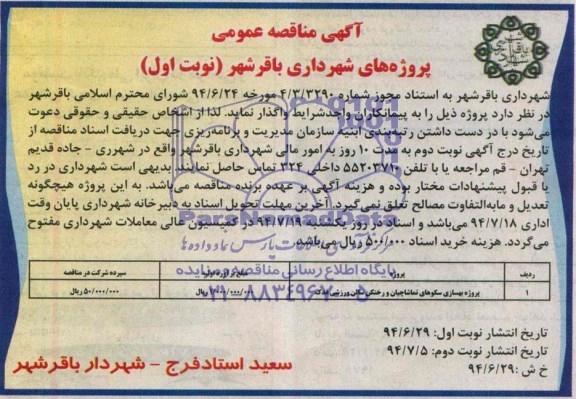 آگهی مناقصه عمومی
پروژه‌های شهرداری باقرشهر (نوبت اول)
شهرداری باقرشهر به استناد مجوز شماره ۴/۳/۳۲۹۰ مورخه ۹۴/۶/۲۴ شورای محترم اسلامی باقرشهر
در نظر دارد پروژه ذیل را به پیمانکاران واجدشرایط واگذار نماید. لذا از اشخاص حقیقی و حقوقی دعوت
می‌شود با در دست داشتن رتبه‌بندی ابنیه سازمان مدیریت و برنامه‌ریزی جهت دریافت اسناد مناقصه از
تاریخ درج آگهی نوبت دوم به مدت ۱۰ روز به امور مالی شهرداری باقرشهر واقع در شهرری - جاده قدیم
تهران - قم مراجعه یا با تلفن ۵۵۲۰۳۷۲ داخلی ۳۲۴ تماس حاصل نمایند. بدیهی است شهرداری در رد
یا قبول پیشنهادات مختار بوده و هزینه آگهی بر عهده برنده مناقصه می‌باشد. به این پروژه هیچگونه
تعدیل و مابه‌التفاوت مصالح تعلق نمی‌گیرد. آخرین مهلت تحویل اسناد به دبیرخانه شهرداری پایان وقت
اداری ۹۴/۷/۱۸ می‌باشد و اسناد در روز یکشنبه ۹۴/۷/۱۹ در کمیسیون عالی معاملات شهرداری مفتوح
می‌گردد. هزینه خرید اسناد ۵۰۰/۰۰۰ ریال می‌باشد.
ParsNamadData
پایگاه اطلاع رسانی مناقصه و مزایده
ردیف پروژه سپرده شرکت در مناقصه
۱ پروژه بهسازی سکوهای تماشاچیان و رختکن ورزشی ریال ۵۰/۰۰۰/۰۰۰ ریال
۰۲۱-۸۸۳۴۹۶۷۰-۵
تاریخ انتشار نوبت اول: ۹۴/۶/۲۹
تاریخ انتشار نوبت دوم: ۹۴/۷/۵
خ ش: ۹۴/۶/۲۹
سعید استادفرج - شهردار باقرشهر